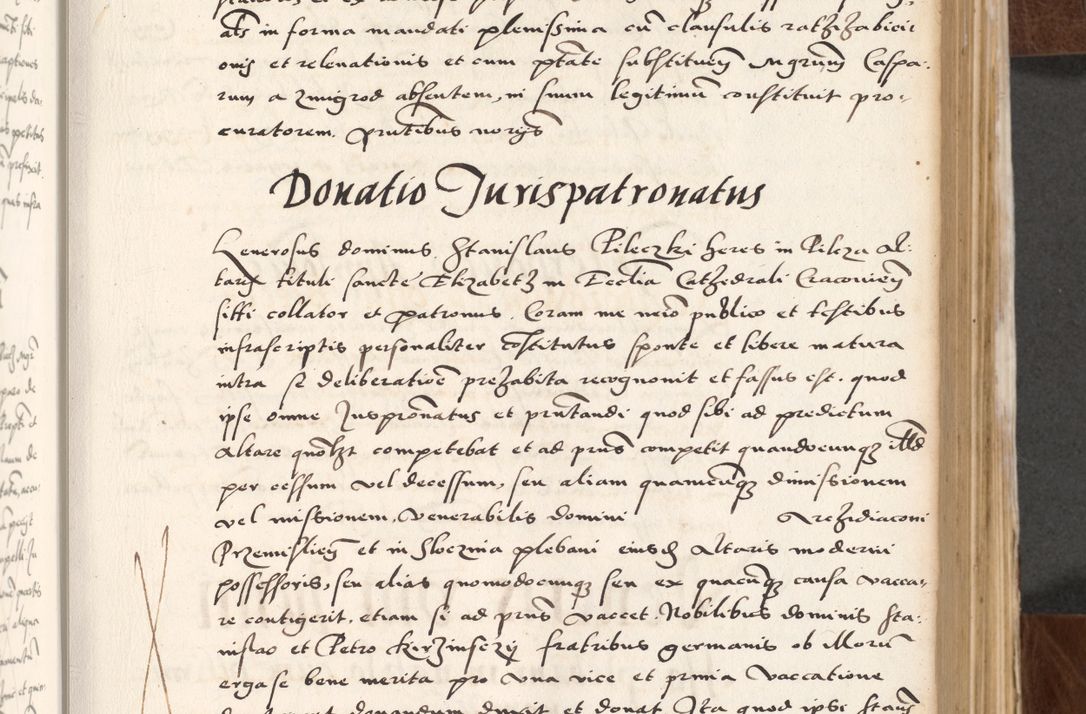 als in forma mandati plenissima cũ clausulis ratihabicit
onis et relevationis et cum ptāte substituen̄ Mgrum̄ Caspa-
rum a Zmigrod absentem, in suum legitimũ constituit pro-
curatorem. pn̄tibus
Donatio Jurispatronatus
Generosus dominus Stanislaus Pileczki heres in Pilcza Al-
taris tituli sancte Elizabeth in Ecclia Cathedrali Cracovien̄
siti collator et patronus. Coram me no͞rio publico et testibus
infrascriptis personaliter co͞stitutus sponte et libere matura
intra se deliberatioe͞ prehabita recognovit et fassus est. quod
ipse omne Juspro͞natus et pn̄tandi quod sibi ad predictum
Altare quo͞lt competebat et ad pn͞s competit quandocunq; illd
per cessum vel decessum, seu aliam quamcu͞q; dimissionem
vel missionem, Venerabilis domini Archidiaconi
Przemislien̄ et in Sloczina plebani eiusd Altaris moderni
possessoris, seu alias quomodocunq; seu ex quacu͞q; causa vacca-
re contigerit, etiam si ad pn͞s vaccet. Nobilibus dominis Sta-
nislao et Petro fratribus germanis ob illorũ
erga se bene merita pro una vice et prima vaccatione
donandum duxit et donat Ita quod ipse Stan͞s